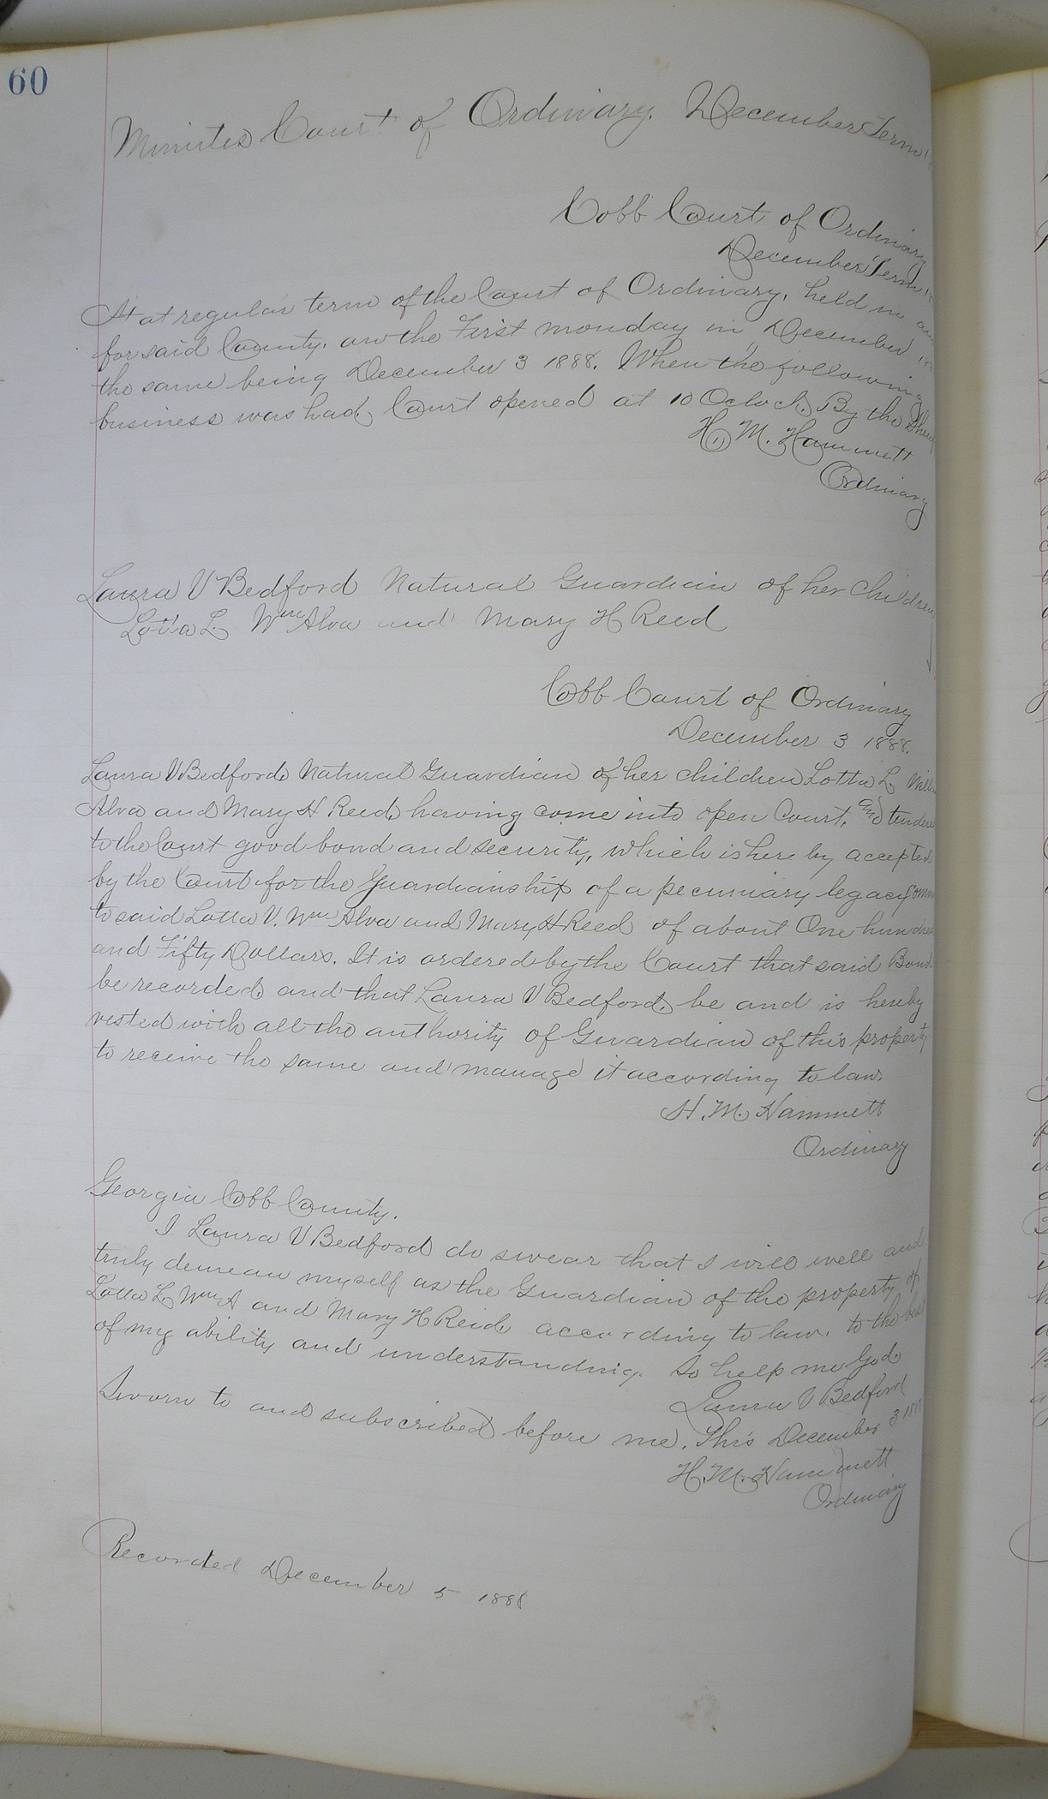 60
Minutes Court of Ordinary. December Term
Cobb Court of Ordinary
December Term
At at regular term of the Court of Ordinary, held in and
for said County. on the First monday in December
the same being December 3 1888. When the following
business was had, Court opened at 10 Oclock. By the
H. M. Hammett
Ordinary
Laura V Bedford Natural Guardian of her Children
Lotta L. Wm Alva and Mary H Reed
Cobb Court of Ordinary
December 3 1888.
Laura V Bedford Natural Guardian of her children Lotta L.
Alva and Mary H Reed, having come into open Court, and
to the Court good bond and security, which is here by accepted
by the Court for the Guardianship of a pecuniary legacy
to said Lotta V. Wm Alva and Mary H Reed of about One hundred
and Fifty Dollars. It is ordered by the Court that said Bond
be recorded and that Laura V Bedford, be and is hereby
vested with all the authority of Guardian of this property
to receive the same and manage it according to law.
H. M. Hammett
Ordinary
Georgia Cobb County.
I Laura V Bedford do swear that I will well and
truly demean myself as the Guardian of the property of
Lotta L. Wm A and Mary H Reid, according to law. to the best
of my ability and understanding. So help me God.
Laura V Bedford
Sworn to and subscribed before me. This December 3
H. M. Hammett
Ordinary
Recorded December 5 1888